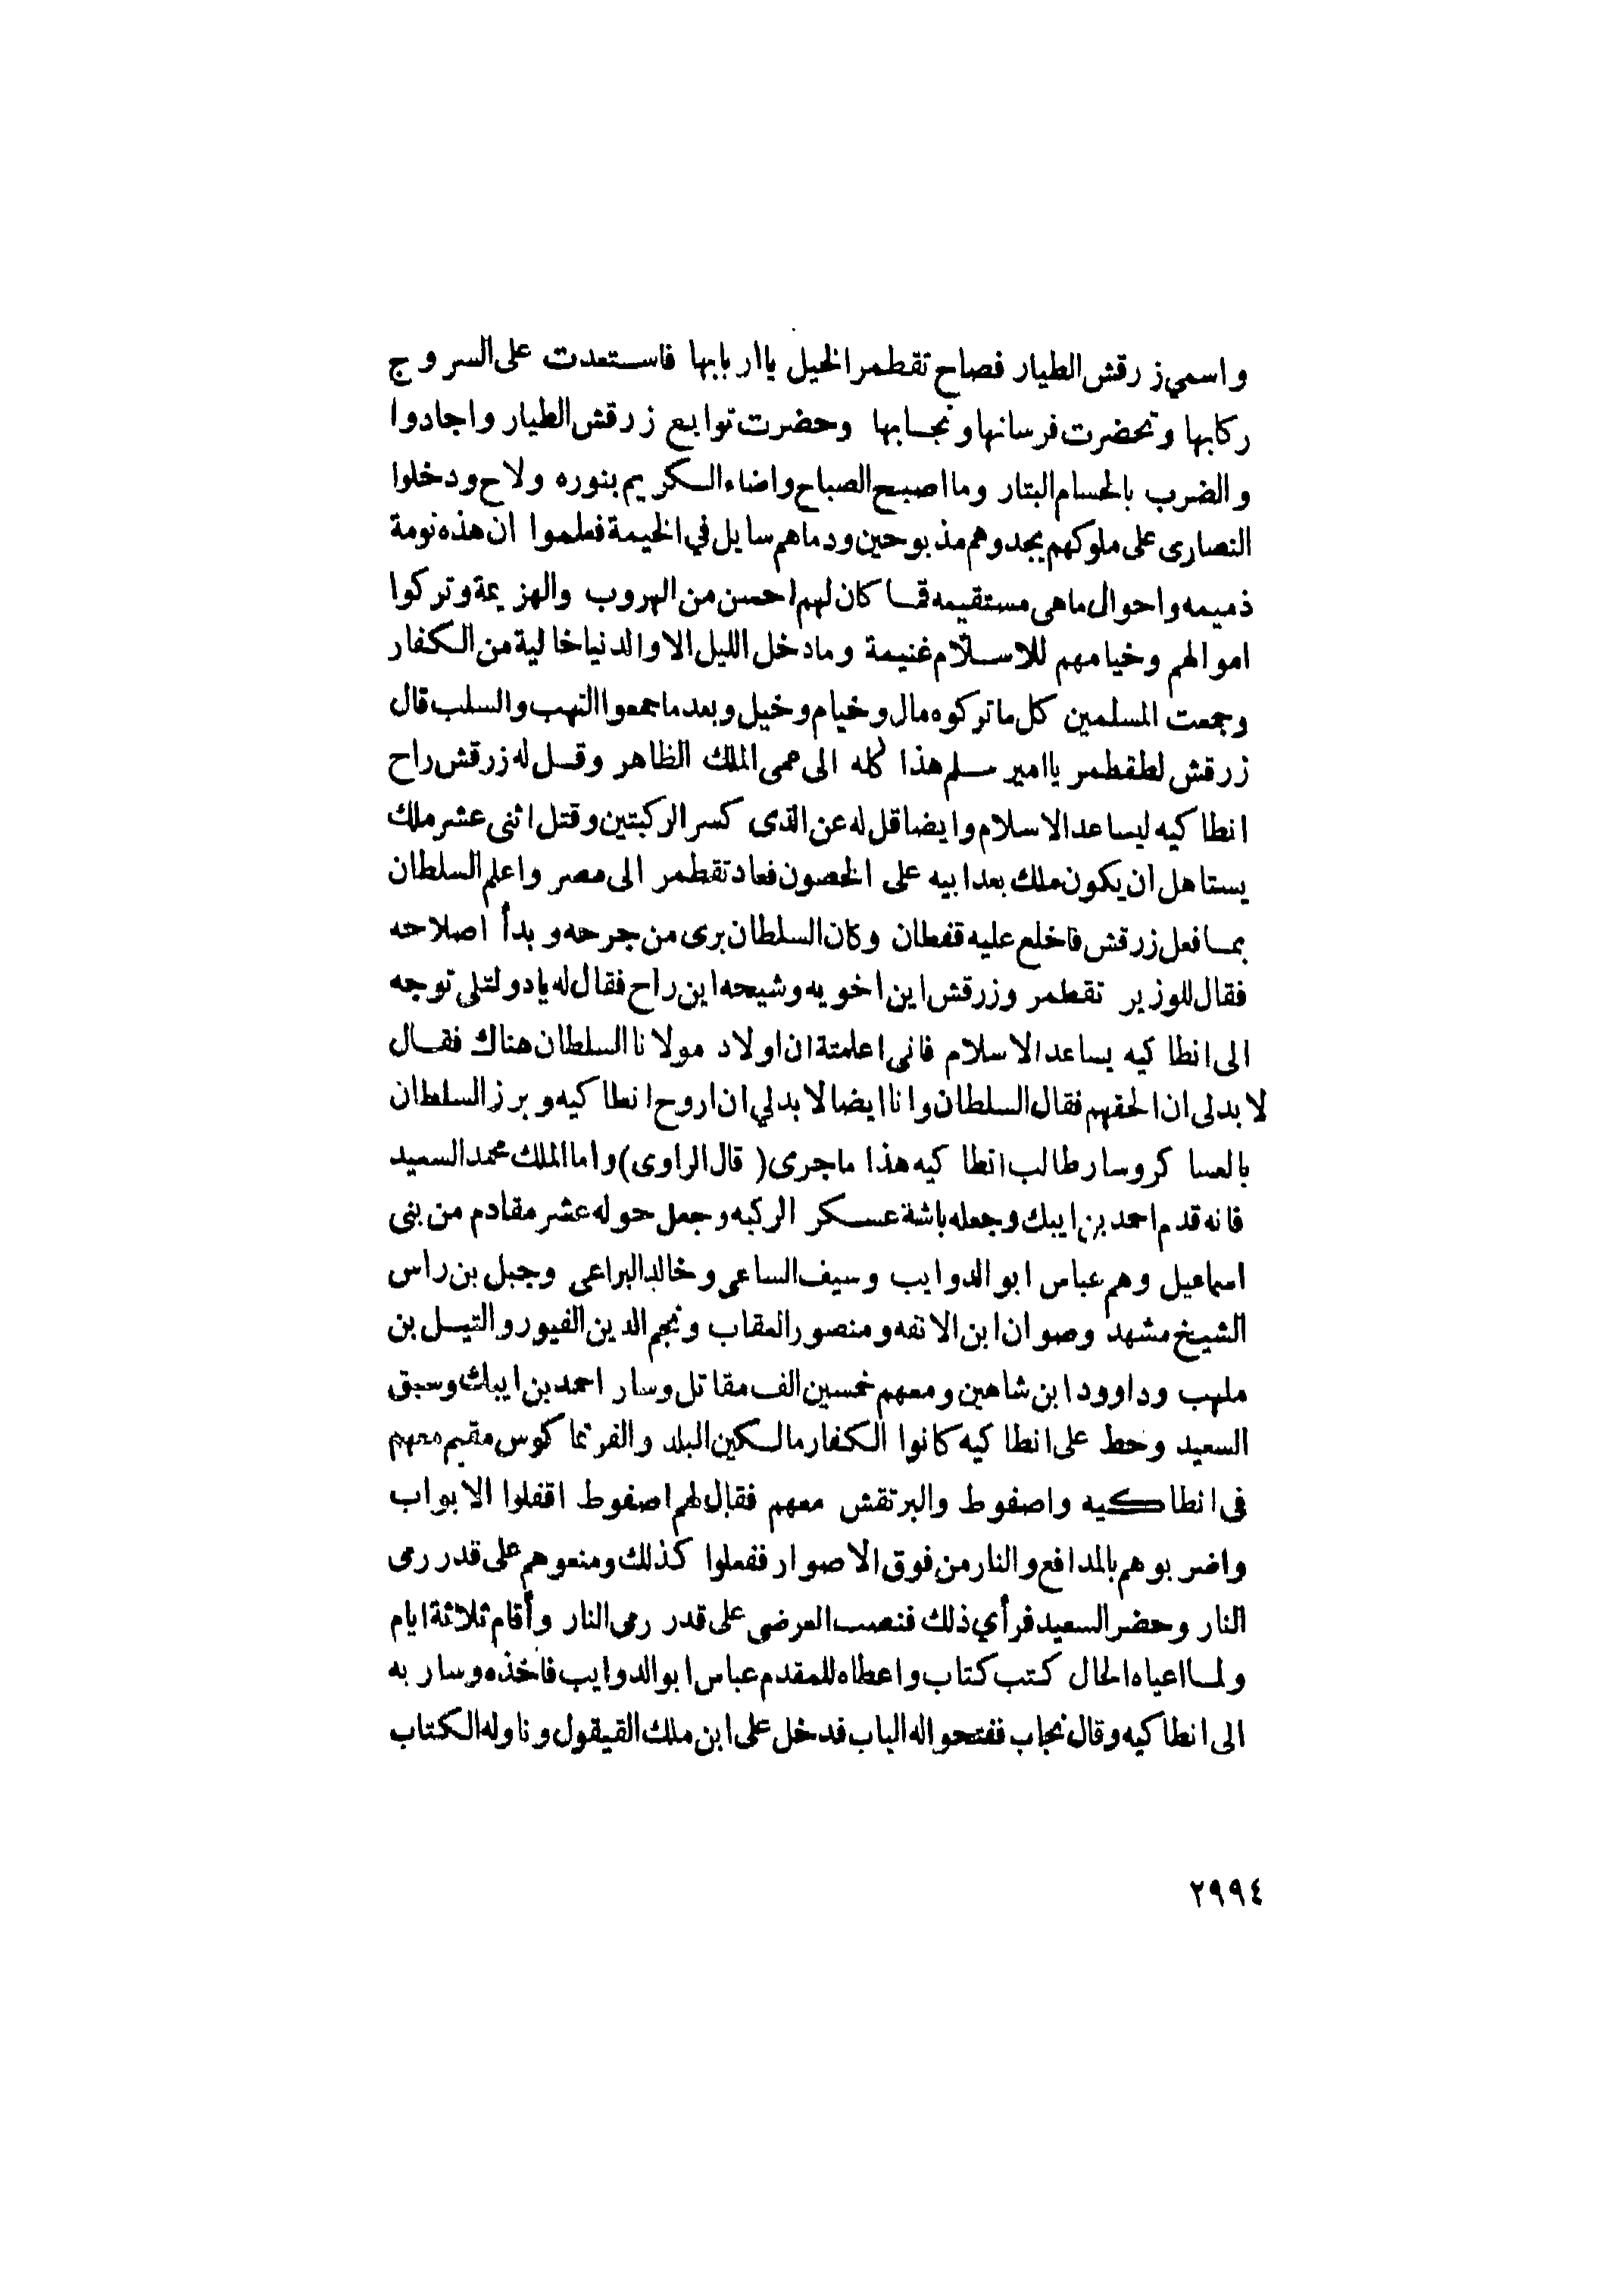 واسمي زرقش الطيار فصاح تقطمر الخيل ياار بابها فاستعدت على السروج
ركابها وتحضرت فرسانها ونجابها وحضرت توابع زرقش الطيار واجادوا
والضرب بالحسام البتار وما اصبح الصباح واضاء الكريم بنوره ولاح ودخلوا
النصارى على ملوكهم يجدوهم مذبوحين ودماهم سايل في الخيمة فعلموا ان هذه نومة
ذميمه واحوال ماهى مستقيمه فما كان لهم احسن من الهروب والهزيمة وتركوا
اموالهم وخيامهم للاسلام غنيمة ومادخل الليل الا والدنيا خالية من الكفار
وجمعت المسلمين كل ماتركوه مال وخيام وخيل وبعد ماجمعوا النهب والسلب قال
زرقش لطقطمر ياامير سلم هذا كله الى حمى الملك الظاهر وقل له زرقش راح
انطاكيه ليساعد الاسلام وايضا قل له عن الذى كسر الركبتين وقتل اثنى عشر ملك
يستاهل ان يكون ملك بعد ابيه على الحصون فعاد تقطمر الى مصر واعلم السلطان
بما فعل زرقش فاخلع عليه قفطان وكان السلطان برى من جرحه وبدأ اصلاحه
فقال للوزير تقطمر وزرقش اين اخويه وشيحه اين راح فقال له يادولتلى توجه
الى انطاكيه يساعد الاسلام فانى اعلمتة ان اولاد مولانا السلطان هناك فقال
لابدلى ان الحقهم فقال السلطان وانا ايضا لابدلي ان اروح انطاكيه وبرز السلطان
بالعساكر وسار طالب انطاكيه هذا ماجرى (قال الراوى) واما الملك محمد السعيد
فانه قدم احمد بن ايبك وجعله باشة عسكر الركبه وجعل حوله عشر مقادم من بنى
اسماعيل وهم عباس ابو الدوايب وسيف الساعى وخالد البراعى وجبل بن راس
الشيخ مشهد وصوان ابن الانفه ومنصور العقاب ونجم الدين الغيور والتيل بن
ملهب وداوود ابن شاهين ومعهم خمسين الف مقاتل وسار احمد بن ايبك وسبق
السعيد وحط على انطاكيه كانوا الكفار مالكين البلد والفرتماكوس مقيم معهم
فى انطاكيه واصفوط والبرتقش معهم فقال لهم اصفوط اقفلوا الابواب
واضربوهم بالمدافع والنار من فوق الاصوار ففعلوا كذلك ومنعوهم على قدر رمى
النار وحضر السعيد فرأي ذلك فنصب العرضى على قدر رمى النار وأقام ثلاثة ايام
ولما اعياه الحال كتب كتاب واعطاه للمقدم عباس ابو الدوايب فاخذه وسار به
الى انطاكيه وقال نجاب ففتحوا له الباب فدخل على ابن ملك القيقول وناوله الكتاب
٢٩٩٤